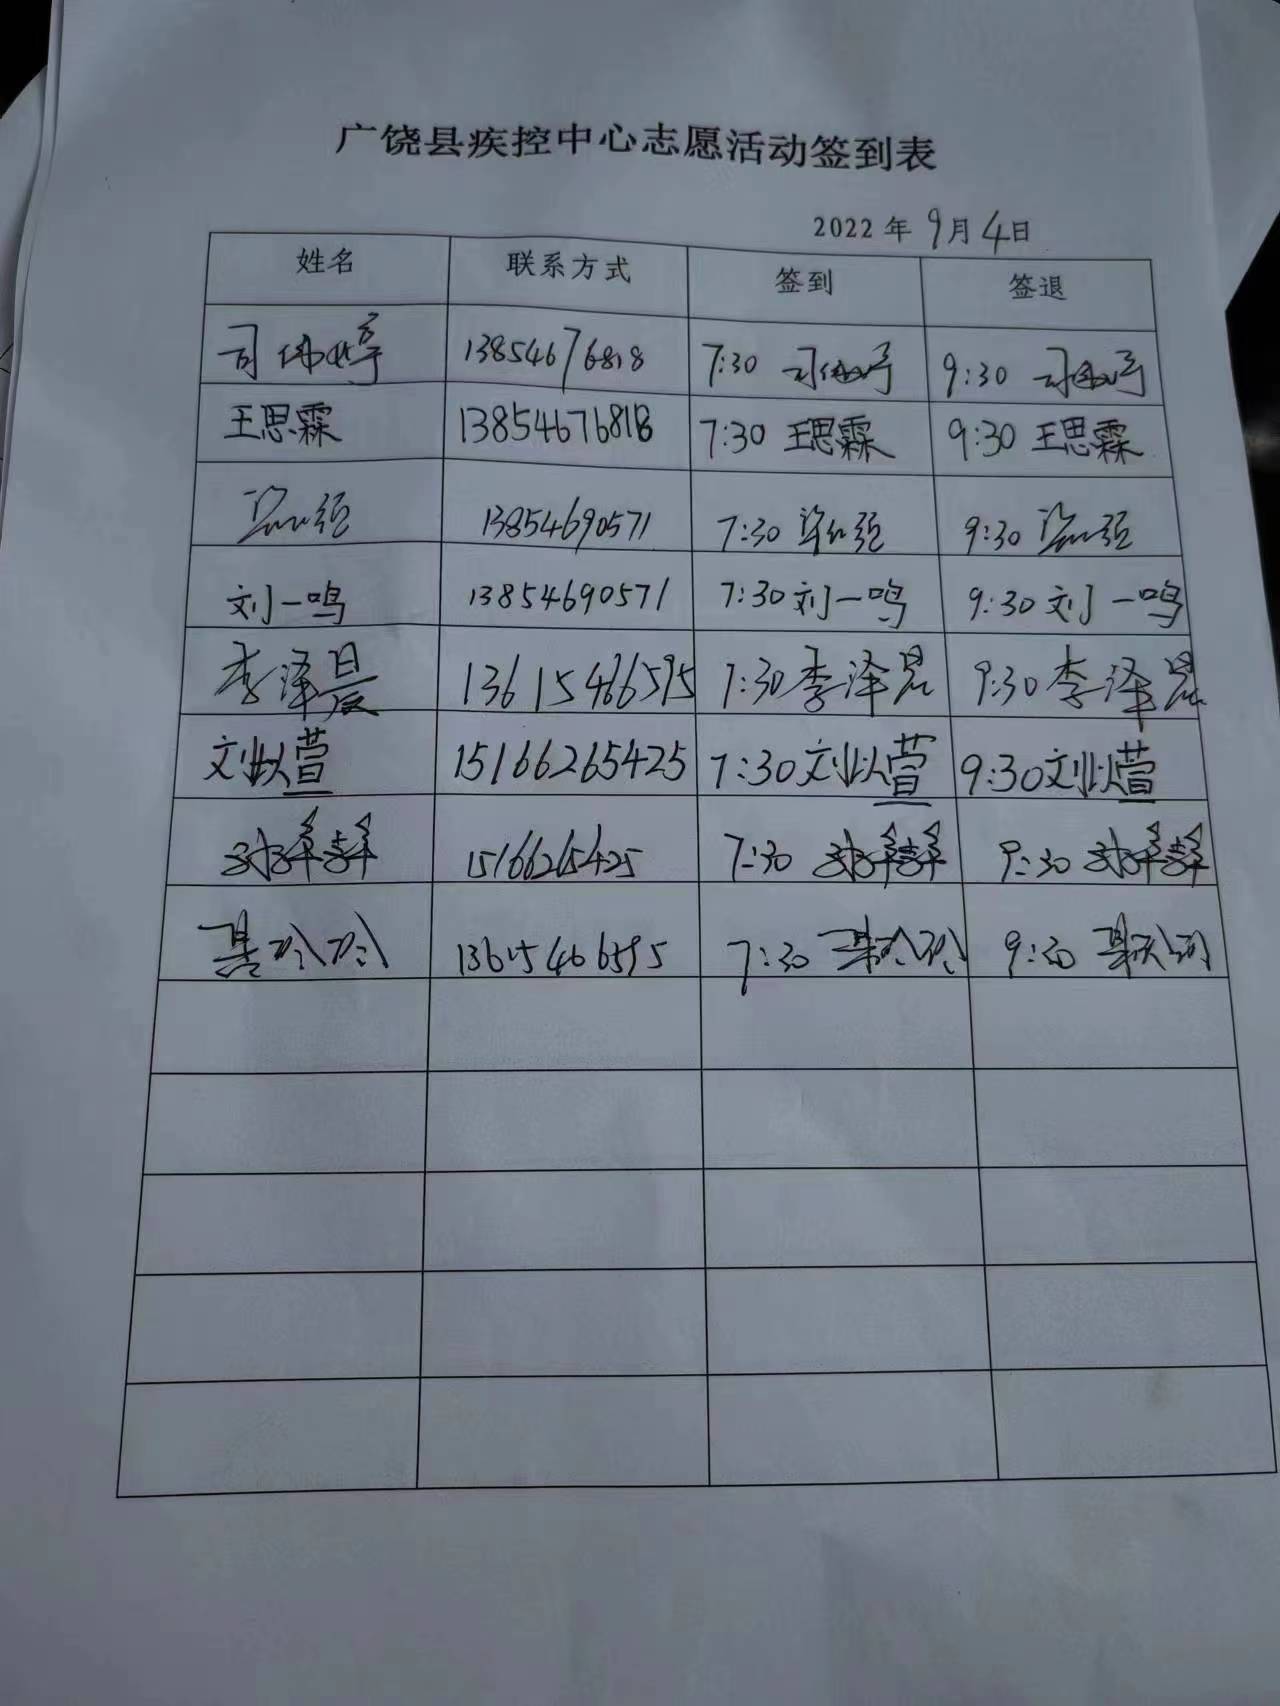 广饶县疾控中心志愿活动签到表
2022年9月4日
姓名 联系方式 签到 签退
司伟婷 13854676818 7:30 司伟婷 9:30 司伟婷
王思霖 13854676818 7:30 王思霖 9:30 王思霖
13854690571 7:30 9:30
刘一鸣 13854690571 7:30 刘一鸣 9:30 刘一鸣
李泽晟 13615466595 7:30 李泽晟 9:30 李泽晟
刘以萱 15166265425 7:30 刘以萱 9:30 刘以萱
15166265425 7:30 9:30
13615466595 7:30 9:30